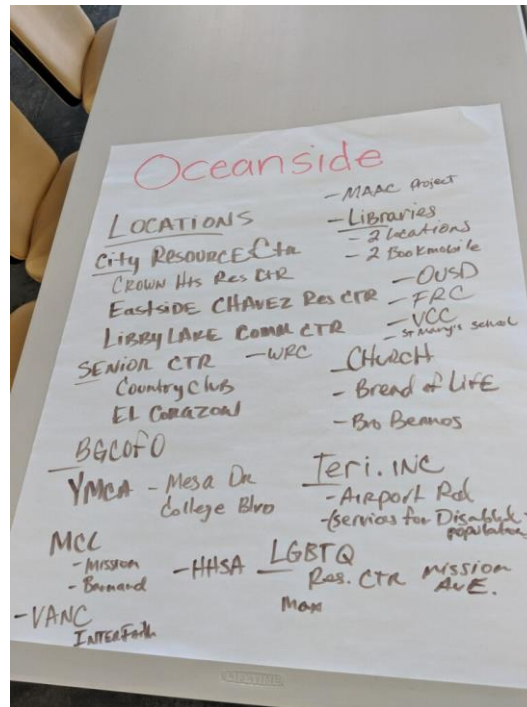 Oceanside
LOCATIONS
City RESOURCE Ctr
CROWN Hts Res CTR
EastsIDE CHAVEZ Res CTR
LIBBY LAKE COMM CTR
SENIOR CTR - WRC
Country Club
EL CORAZON
BGCOFO
YMCA - Mesa Dr
College Blvd
MCC
- Mission
- Barnard
- HHSA
- VANC
INTERFaith
- MAAC Project
- Libraries
- 2 locations
- 2 Bookmobile
- OUSD
- FRC
- VCC
- St Mary's School
CHURCH
- Bread of LIFE
- Bro Bennos
Teri. INC
- AIRport Rd
- (services for Disabled
population
LGBTQ
Res. CTR MISSION
AVE.
LIFETIME